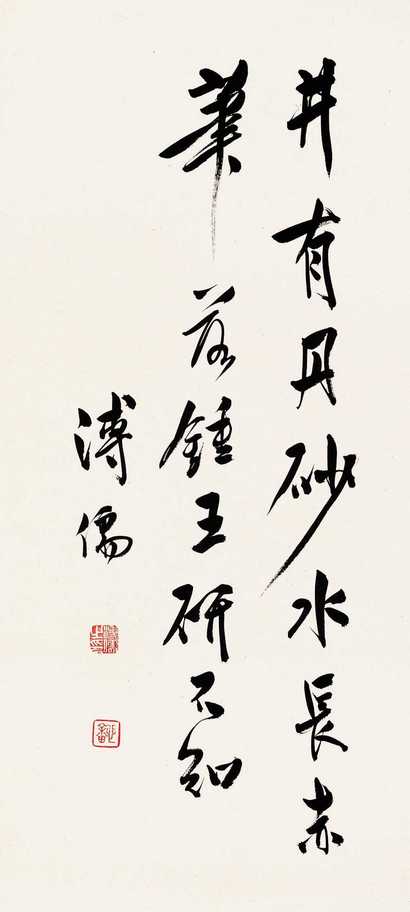 井有丹砂水長赤
華落鍾王研不知
溥儒